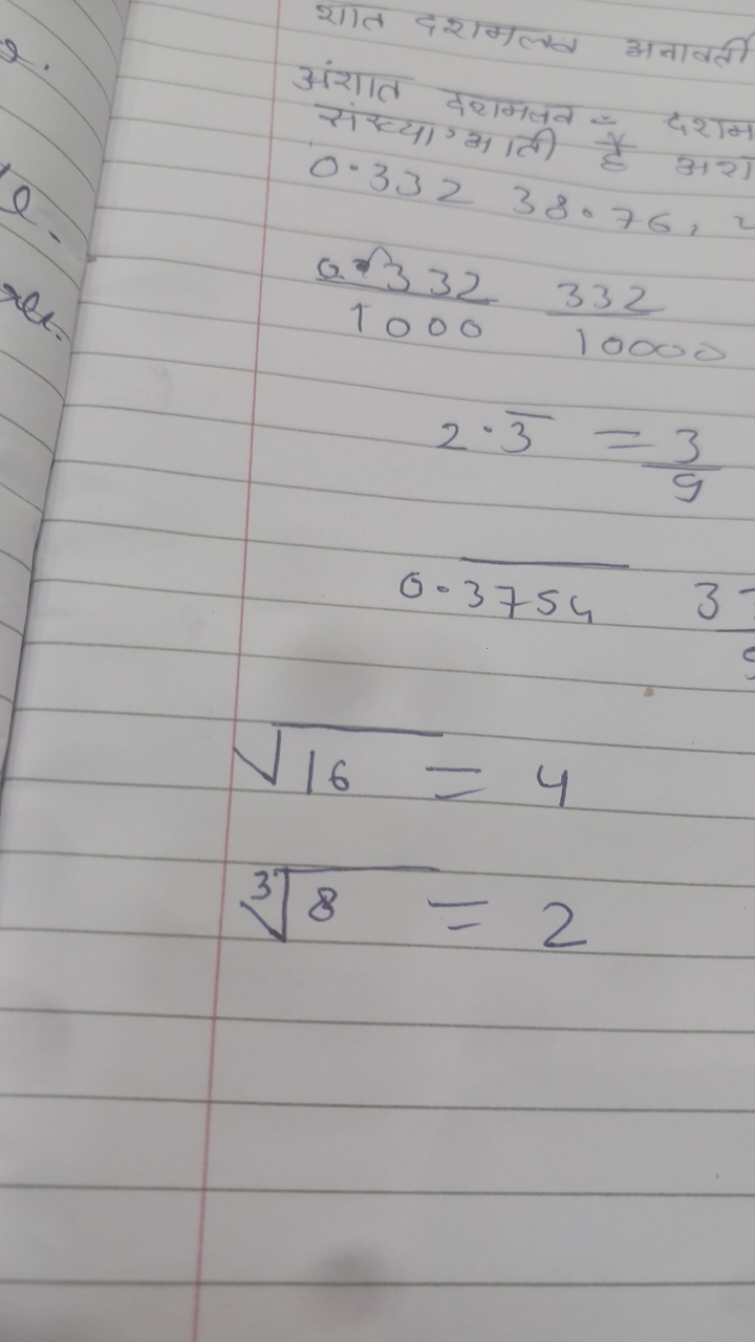 शांत दशमलव अनावर्ती
अंशात दशमलव = दशम
संख्या आती है
0.332 38.76,
332 332
1000 10000
2.3̅ = 3/9
0.3̅7̅5̅4̅ 3
√16 = 4
∛8 = 2